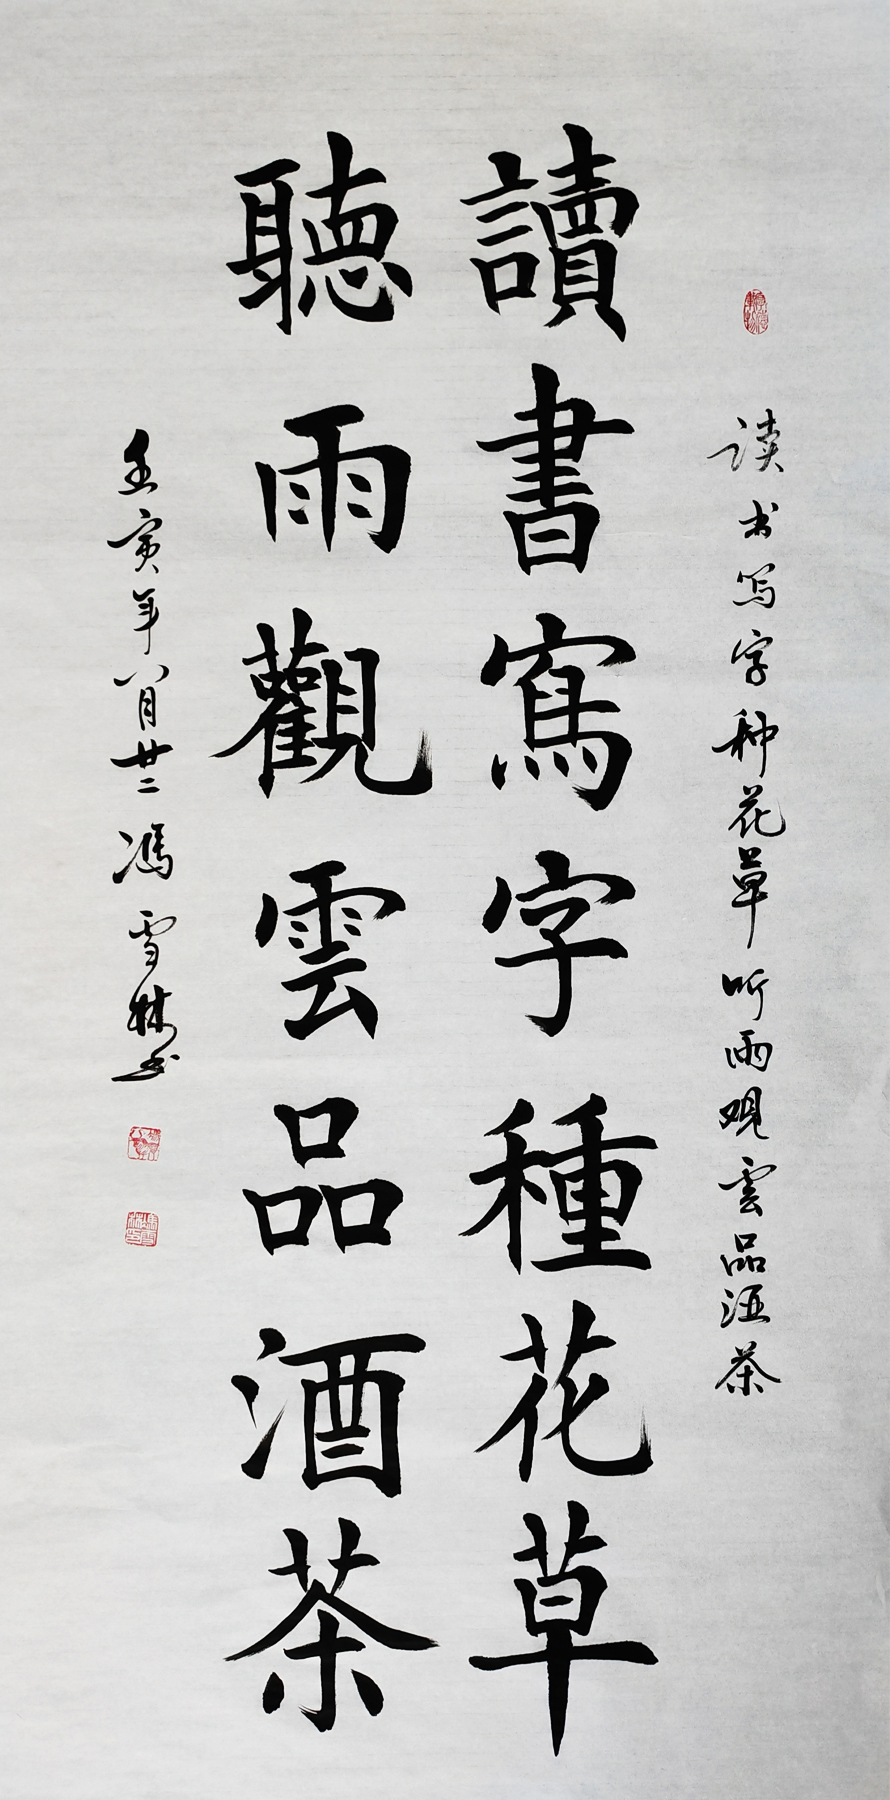 读书写字种花草听雨观雲品酒茶
讀書寫字種花草
聽雨觀雲品酒茶
壬寅年八月廿二冯雪林书